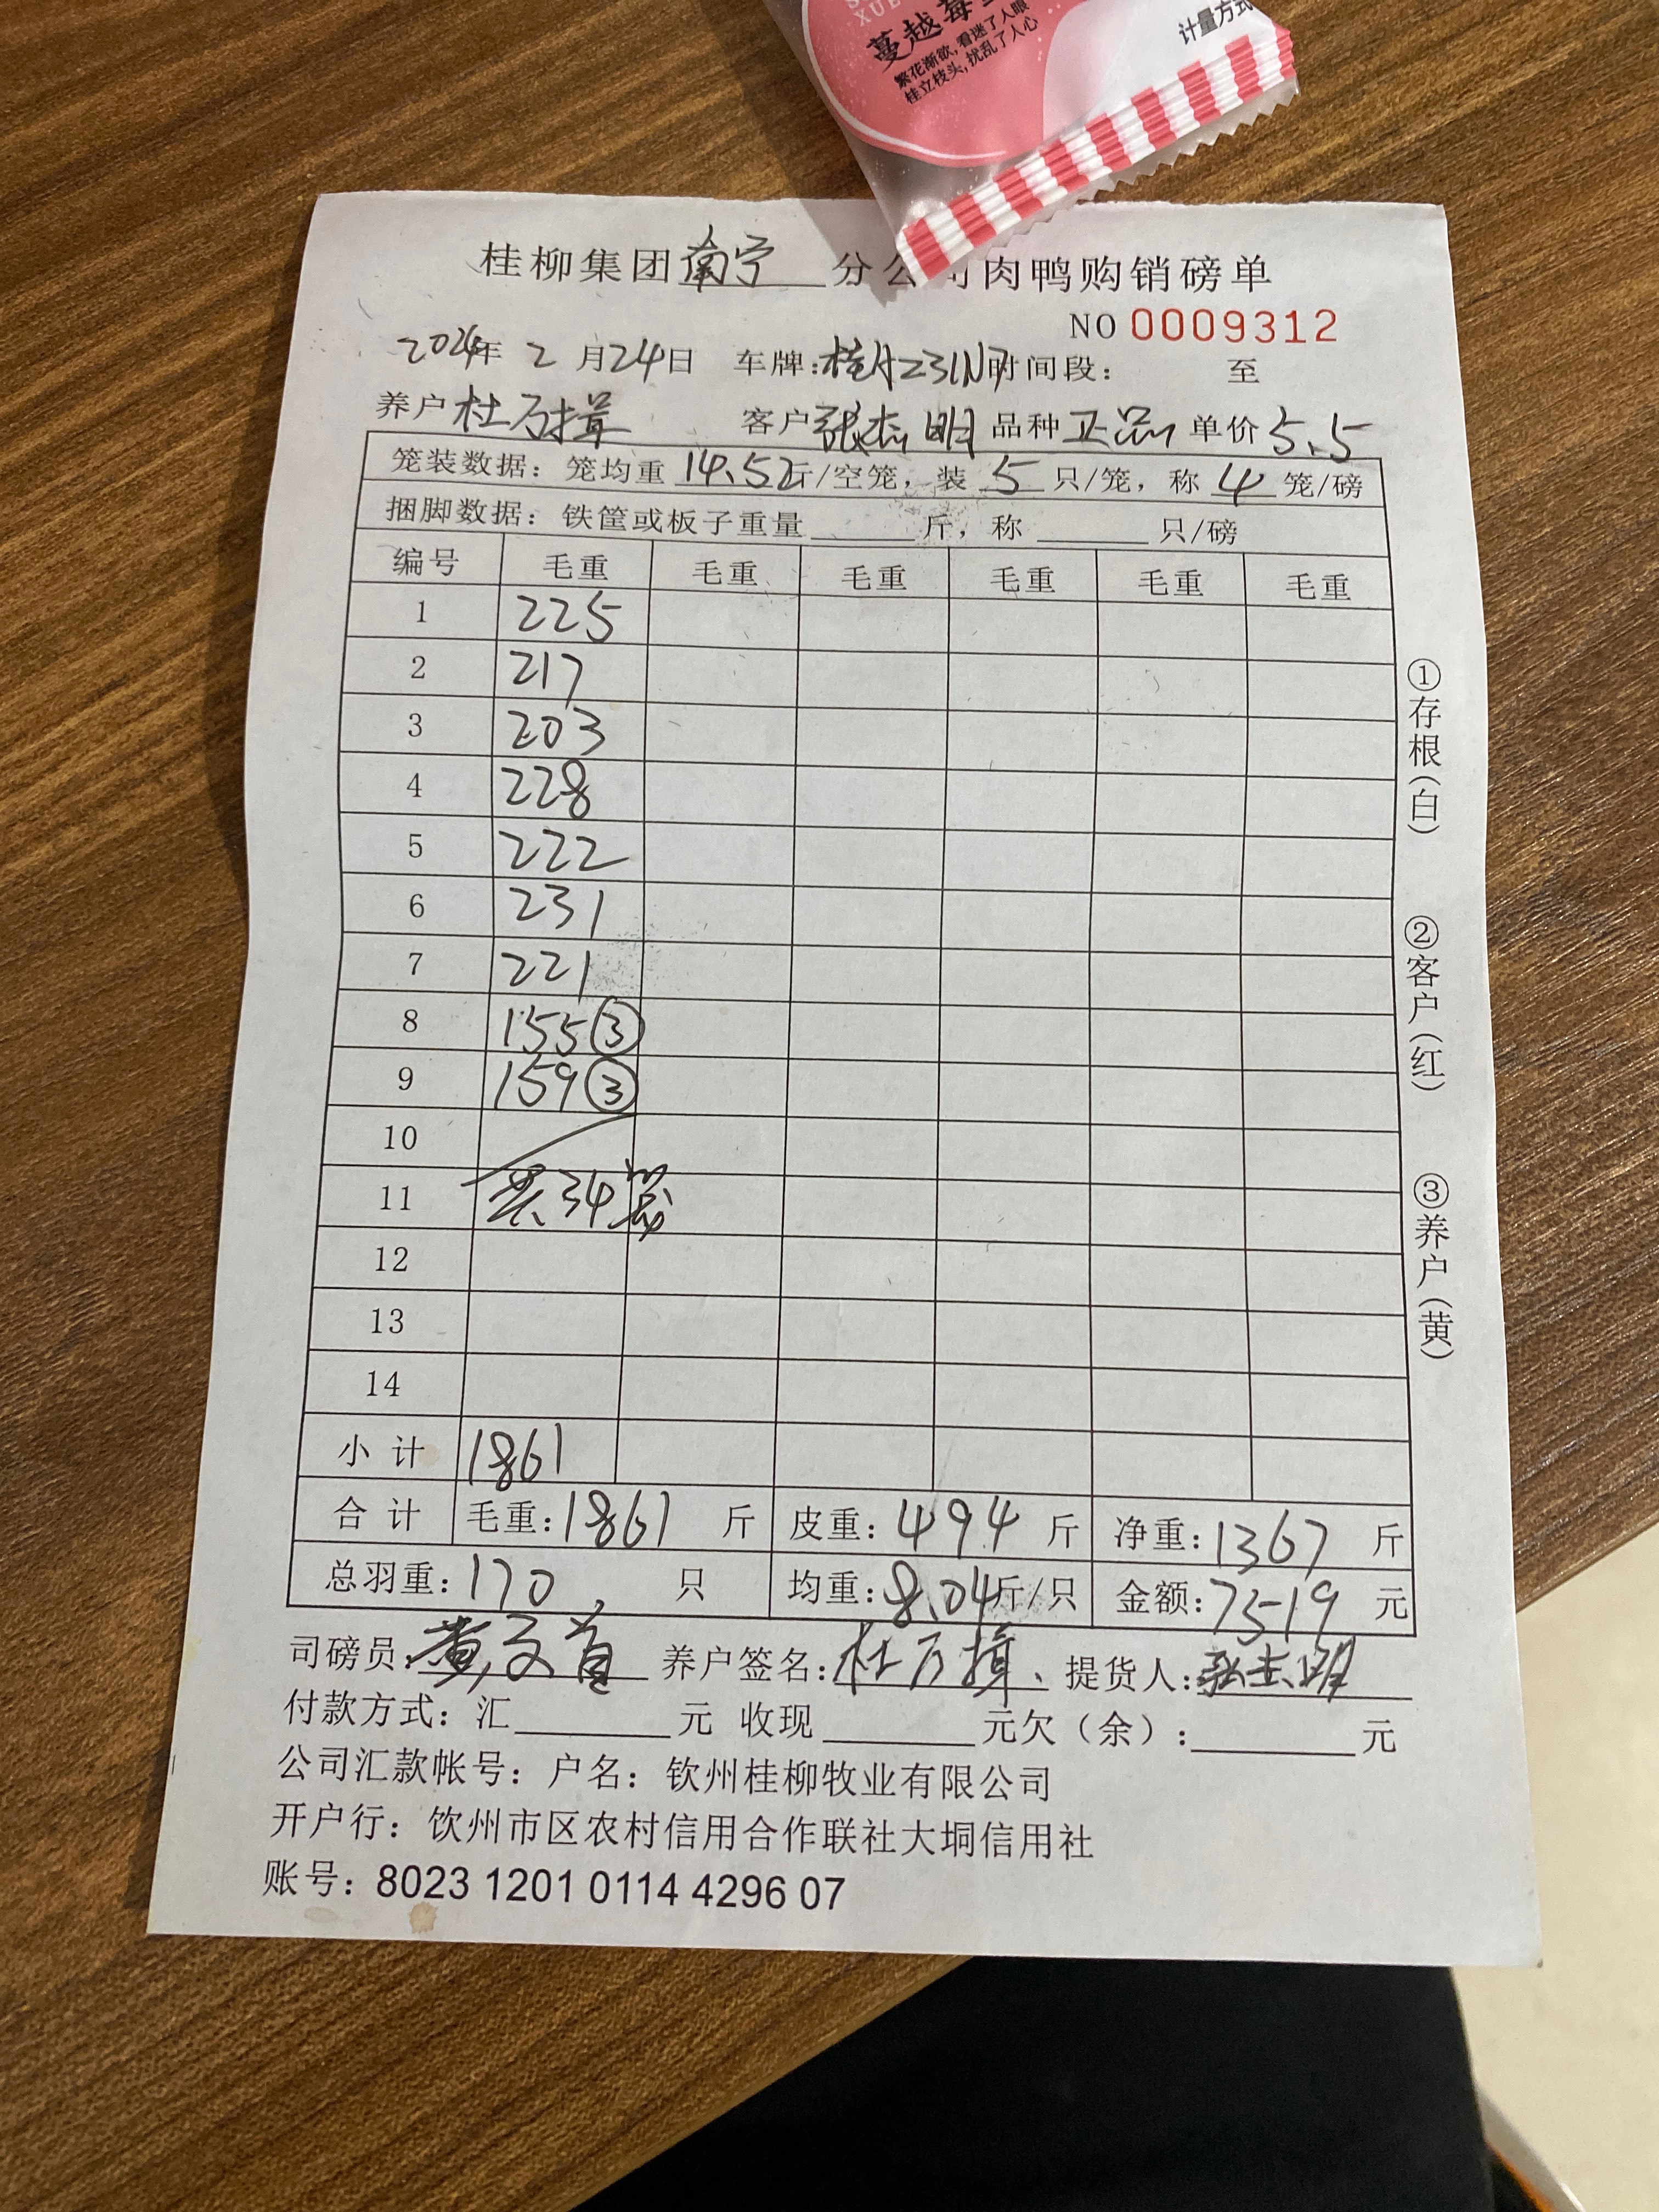 蔓越莓
繁花渐欲,看迷了人眼
桂立枝头,扰乱了人心
计量方式
桂柳集团南宁分公司肉鸭购销磅单
NO 0009312
2024年 2 月24日 车牌: 时间段: 至
养户杜万 客户张杰明 品种正品 单价5.5
笼装数据: 笼均重 14.52斤/空笼, 装 5 只/笼, 称 4 笼/磅
捆脚数据: 铁筐或板子重量 斤, 称 只/磅
编号 毛重 毛重 毛重 毛重 毛重 毛重
1 225
2 217
3 203
4 228
5 222
6 231
7 221
8 155③
9 159③
10
11 共34笼
12
13
14
小计 1861
合计 毛重:1861 斤 皮重:494 斤 净重:1367 斤
总羽重:170 只 均重:8.04斤/只 金额:7519 元
司磅员:黄文首 养户签名:杜万 提货人:张杰明
付款方式: 汇 元 收现 元欠(余): 元
公司汇款帐号: 户名: 钦州桂柳牧业有限公司
开户行: 饮州市区农村信用合作联社大垌信用社
账号: 8023 1201 0114 4296 07
①存根(白)
②客户(红)
③养户(黄)